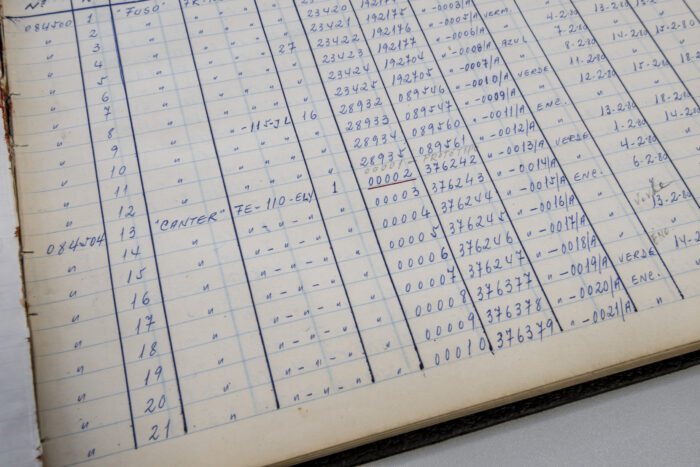 Nº
084500 1 "FUSO"
" 2 "
" 3 " 23420
" 4 " 23421 192175
" 5 " 27 23422 192176 " -0003/A
" 6 " " 23423 192177 " -0005/A VERM.
" 7 " " 23424 192704 " -0008/A " 4-2-80
" 8 " " 23425 192705 " -0007/A AZUL 7-2-80
" 9 " " -115-JL 16 28932 089546 " -0010/A VERDE 8-2-80
" 10 " " 28933 089547 " -0009/A " 11-2-80
" 11 " " 28934 089560 " -0011/A ENC. 12-2-80
" 12 " " 28935 089561 " -0012/A " 13-2-80
00001 - PROTOTIPO
084504 13 "CANTER" 7E-110-ELV 1 00002 376242 " -0013/A VERDE 1-2-80
" 14 " " - " - " " 00003 376243 " -0014/A " 4-2-80
" 15 " " - " - " " 00004 376244 " -0015/A ENC. 6-2-80
" 16 " " - " - " " 00005 376245 " -0016/A "
" 17 " " - " - " " 00006 376246 " -0017/A " 13-2-80
" 18 " " - " - " " 00007 376247 " -0018/A "
" 19 " " - " - " " 00008 376377 " -0019/A VERDE
" 20 " " - " - " " 00009 376378 " -0020/A ENC.
" 21 " " - " - " " 00010 376379 " -0021/A "